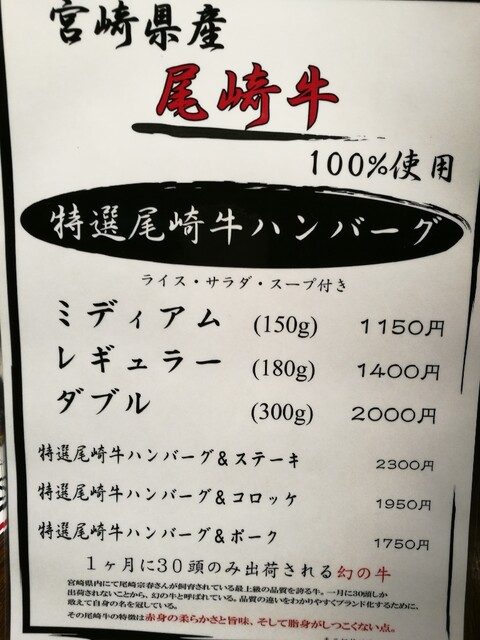 宮崎県産
尾崎牛
100%使用
特選尾崎牛ハンバーグ
ライス・サラダ・スープ付き
ミディアム (150g) 1150円
レギュラー (180g) 1400円
ダブル (300g) 2000円
特選尾崎牛ハンバーグ&ステーキ 2300円
特選尾崎牛ハンバーグ&コロッケ 1950円
特選尾崎牛ハンバーグ&ポーク 1750円
1ヶ月に30頭のみ出荷される幻の牛
宮崎県内にて尾崎宗春さんが飼育されている最上級の品質を誇る牛。一月に30頭しか
出荷されないことから、幻の牛と呼ばれている。品質の違いをわかりやすくブランド化するために、
敢えて自身の名を冠している。
その尾崎牛の特徴は赤身の柔らかさと旨味、そして脂身がしつこくない点。